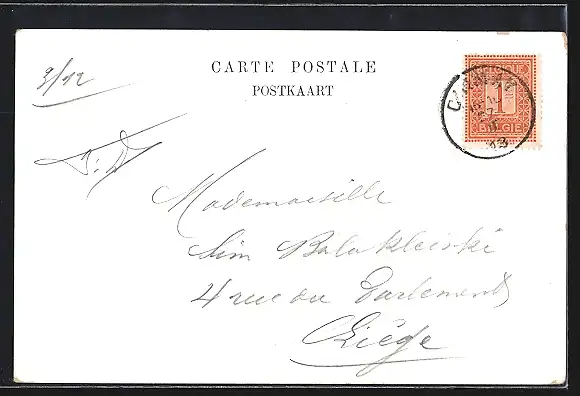 3/12
CARTE POSTALE
POSTKAART
1
BELGIE
Mademoiselle
Sim Balakleiski
4 rue du Parlement
Liège